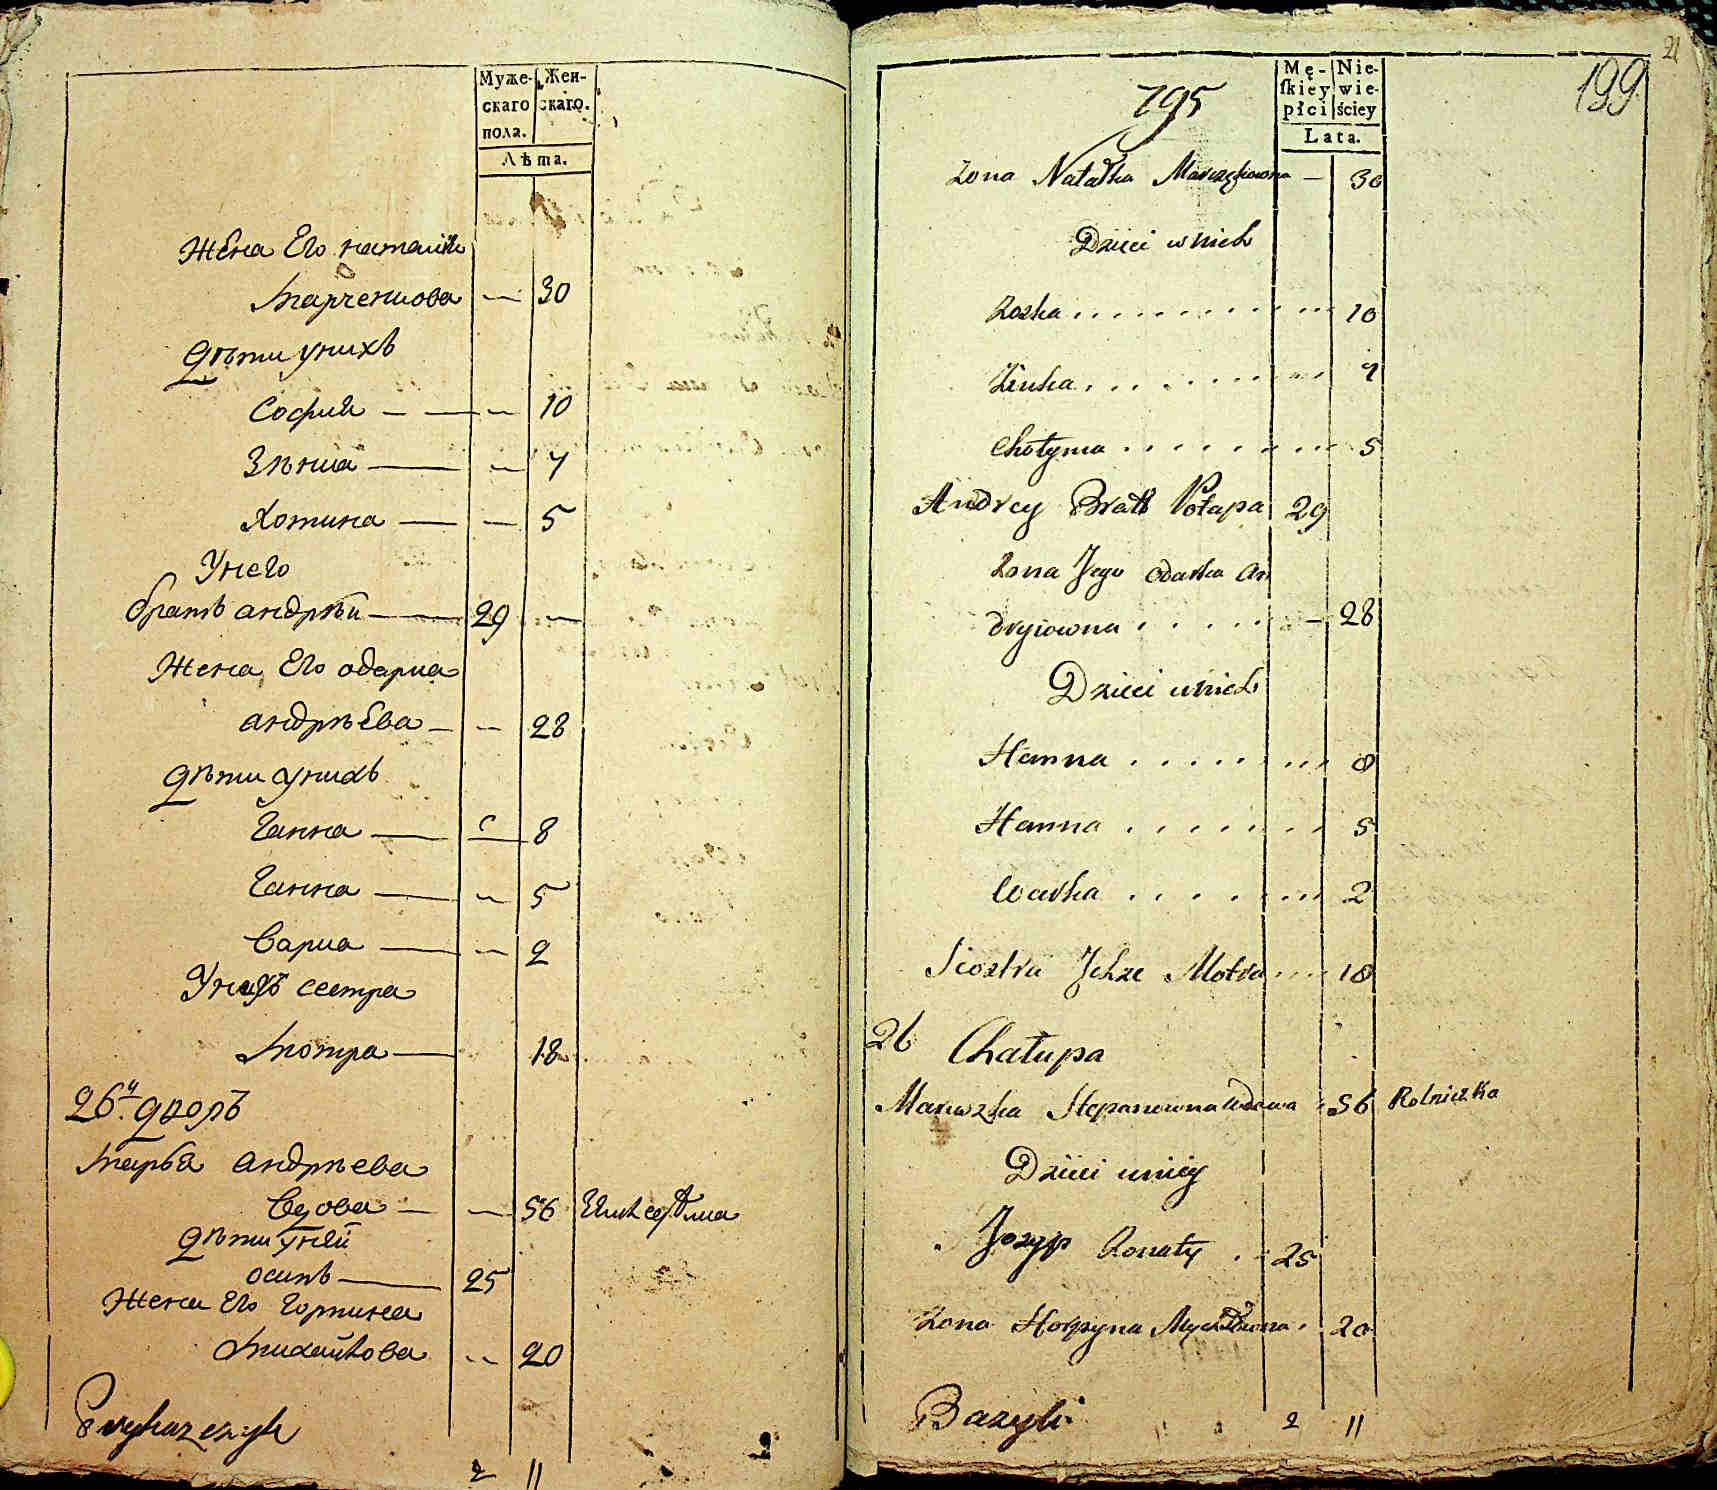 Муже-
скаго
пола.
Жен-
скаго.
Лѣта.
Жена Его наталія
Марченкова — 30
Дѣти унихъ
София — — 10
Зѣнка — — 7
Хотина — — 5
Унего
братъ андрѣй — 29 —
Жена Его одарка
андрѣева — — 28
Дѣти унихъ
Ганна — 8
Ганна — — 5
Варка — — 2
Унихъ сестра
Мотра — 18
26й дворъ
Марья андрѣева
вдова — — 56
Дѣти уней
осипъ — 25
Жена Его Горпина
Михайлова — 20
2 11
21
199
795
Mę-
skiey
płci
Nie-
wie-
ściey
Lata.
Zona Natalka — 30
Dzieci u nich
Zoska . . . . . . . . . 10
Zinka . . . . . . . . . 7
Chotyma . . . . . . . . 5
Andrey Bratt Potapa 29
Zona Jego Odarka An
dryiowna . . . . . — 28
Dzieci u nich
Hanna . . . . . . . . 8
Hanna . . . . . . . 5
Warka . . . . . . . 2
Siostra Ichze Motra . . . 18
26 Chałupa
Maruszka Stepanowna Wdowa . 56 Rolniczka
Dzieci u niey
Jozyp Zonaty . . 25
Zona Horpyna . 20
Bazyli
2 11